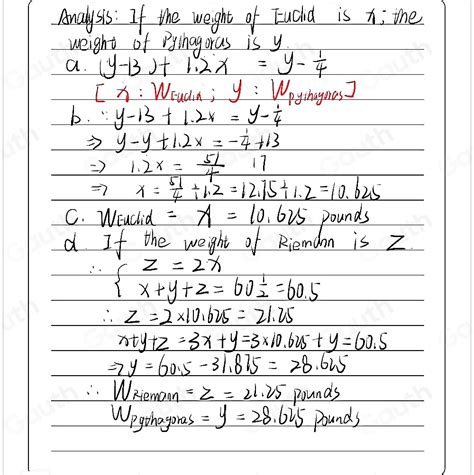 Analysis: If the weight of Euclid is x; the
weight of Pythagoras is y.
a. (y-13)+ 1.2x = y-1/4
[ x: WEuclid ; y: WPythagoras]
b. ∵ y-13+1.2x = y-1/4
⇒ y-y+1.2x = -1/4+13
⇒ 1.2x = 51/4 17
⇒ x = 51/4 ÷1.2 =12.75÷1.2 =10.625
c. WEuclid = x = 10.625 pounds
d. If the weight of Riemann is Z.
∴ { Z = 2x
x+y+z = 60 1/2 = 60.5
∴ Z = 2×10.625 = 21.25
x+y+z = 3x+y=3×10.625+y=60.5
⇒ y = 60.5 - 31.875 = 28.625
∴ WRiemann = z = 21.25 pounds
WPythagoras = y = 28.625 pounds
Gauth